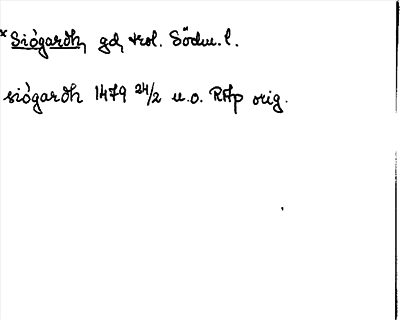 × Siógardh, gd, trol. Södm. l.
siógardh 1479 24/2 u.o. RAp orig.